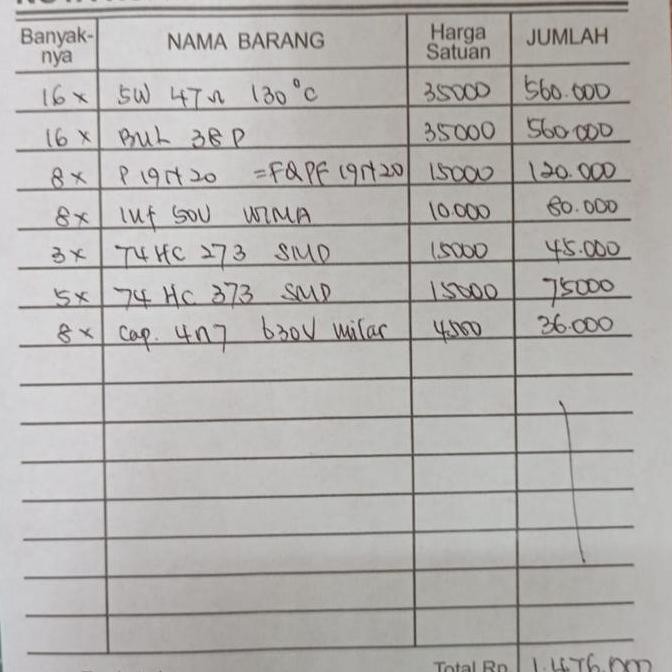 Banyak-nya NAMA BARANG Harga Satuan JUMLAH
16 x 5W 47Ω 130°C 35000 560.000
16 x BUL 38D 35000 560.000
8 x P 19N20 =FQPF 19N20 15000 120.000
8 x 1uf 50V WIMA 10.000 80.000
3 x 74 HC 273 SMD 15000 45.000
5 x 74 HC 373 SMD 15000 75000
8 x Cap. 4n7 630V milar 4500 36.000
Total Rp 1.476.000